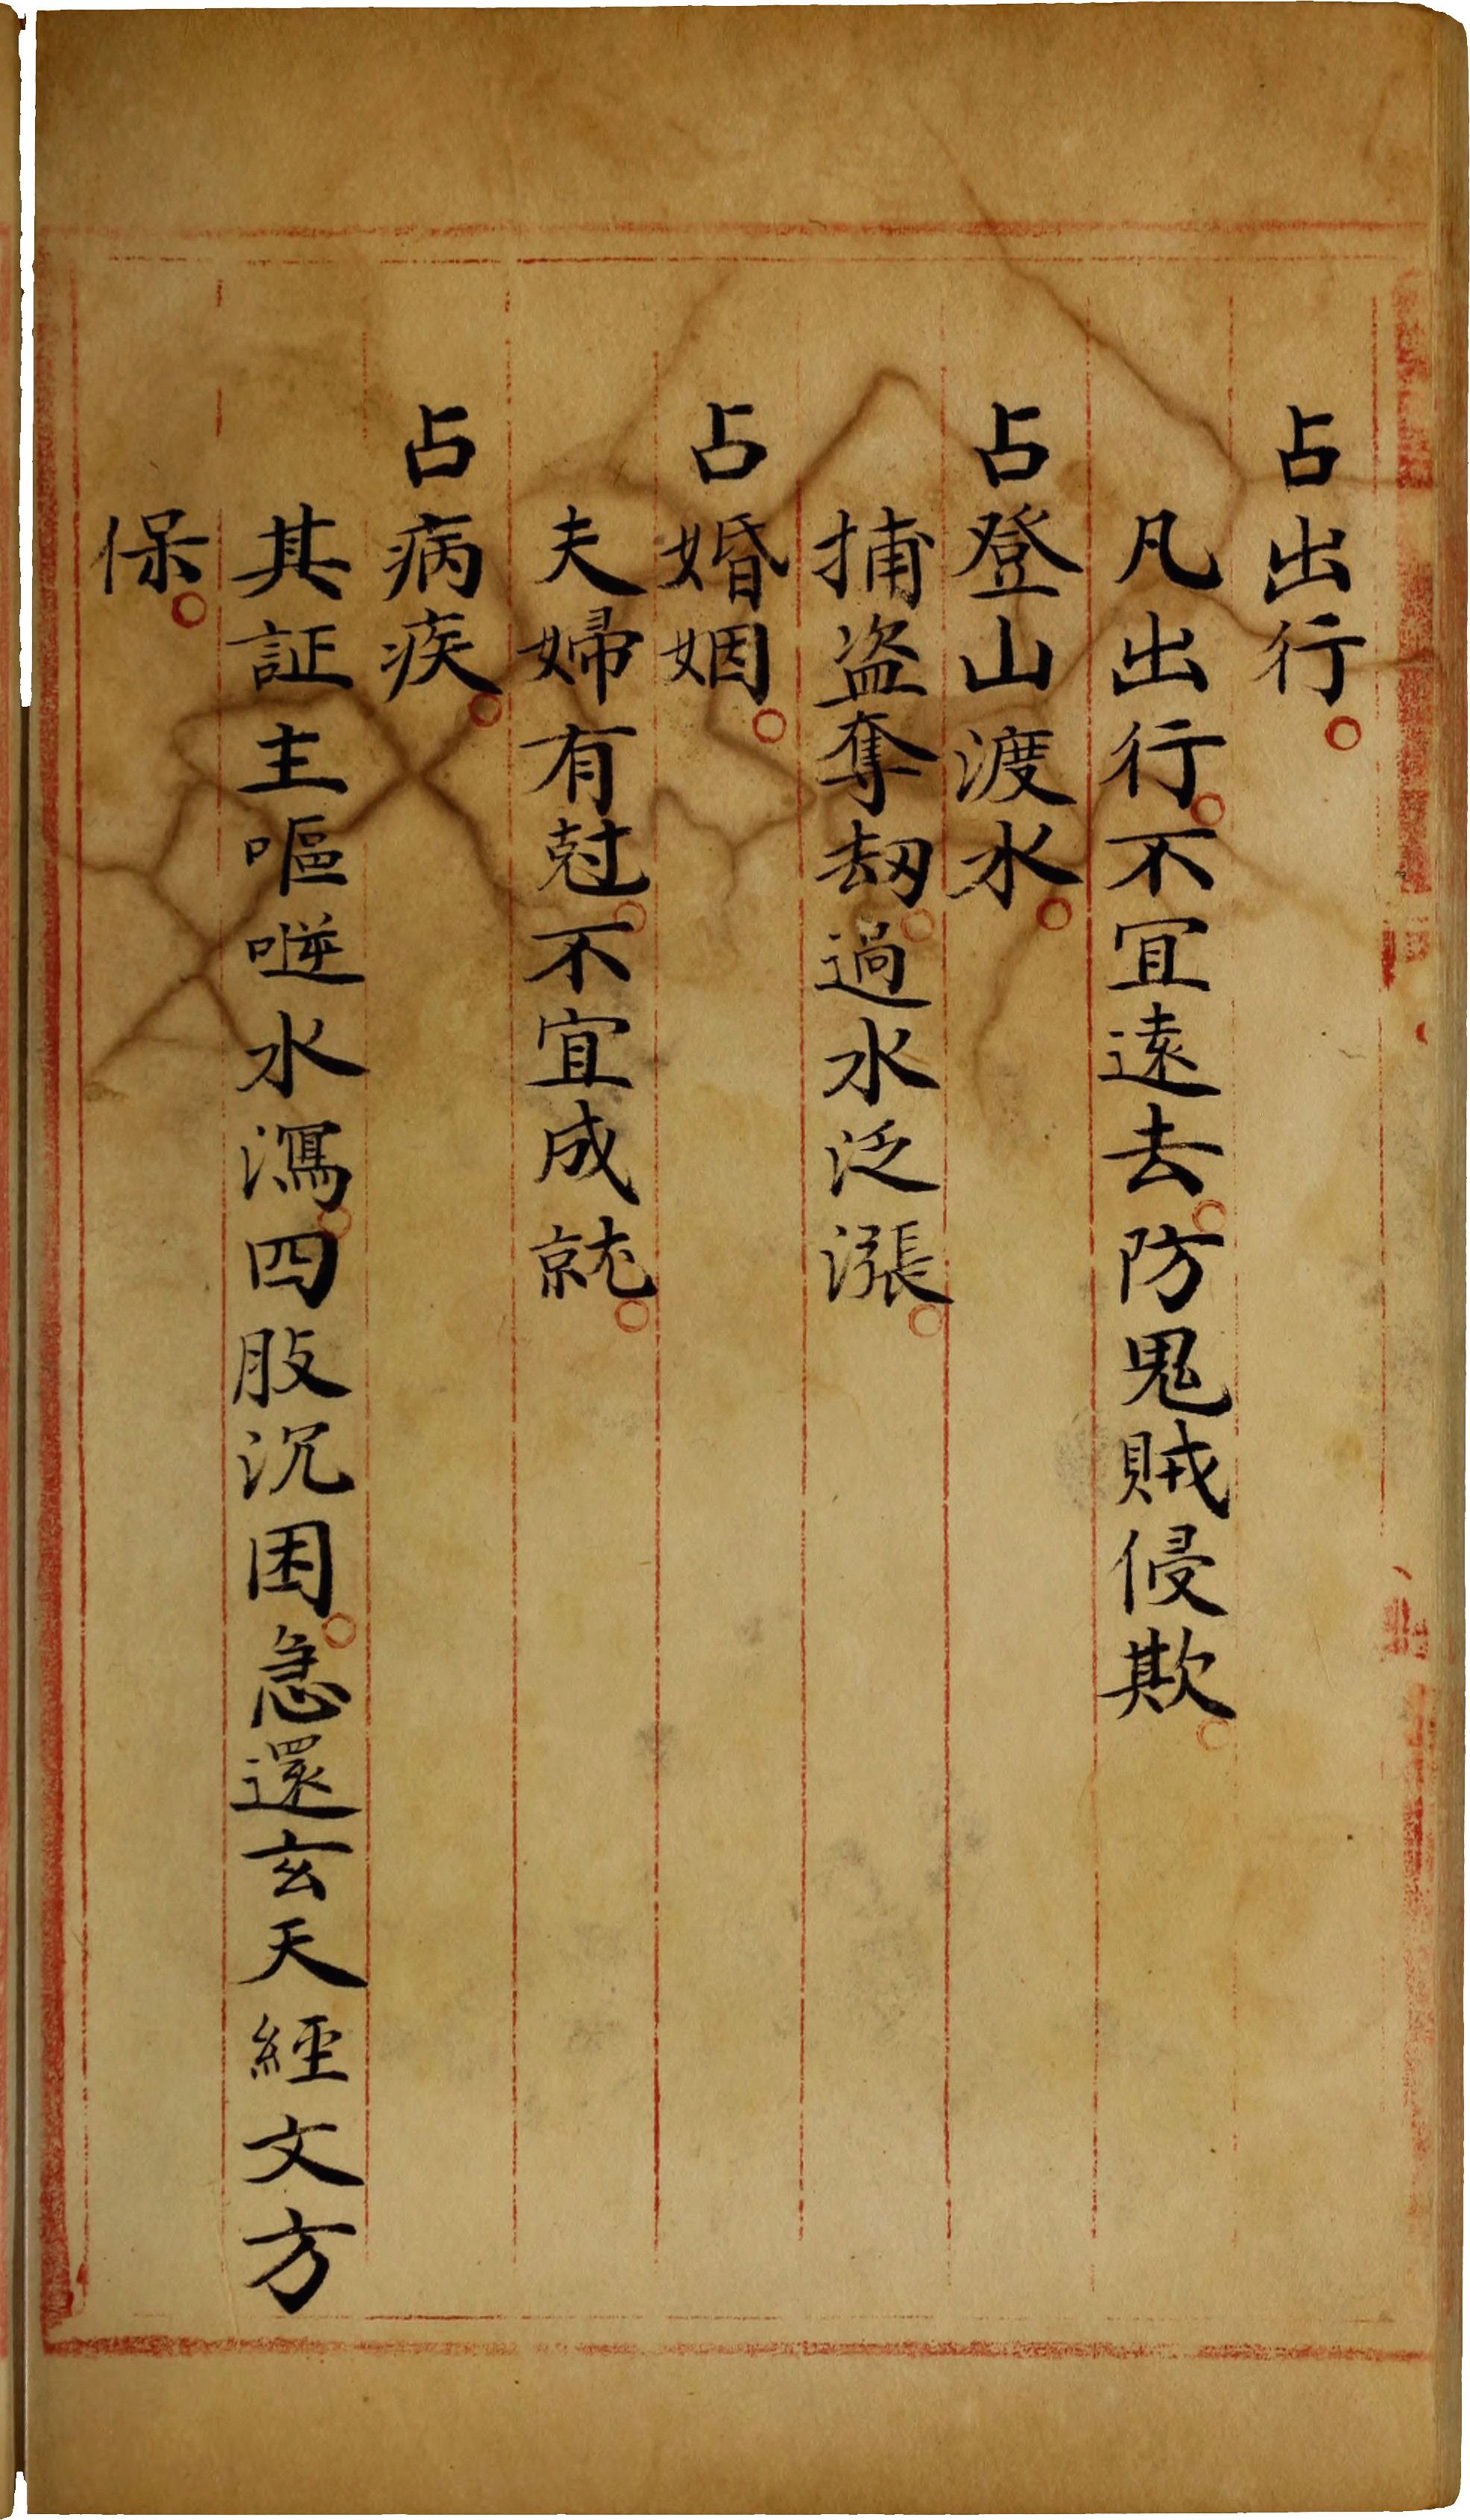 占出行。
凡出行。不宜遠去。防鬼賊侵欺。
占登山渡水。
捕盜奪刼。過水泛漲。
占婚姻。
夫婦有尅。不宜成就。
占病疾。
其証主嘔噬水瀉。四肢沉困。急還玄天經文方
保。